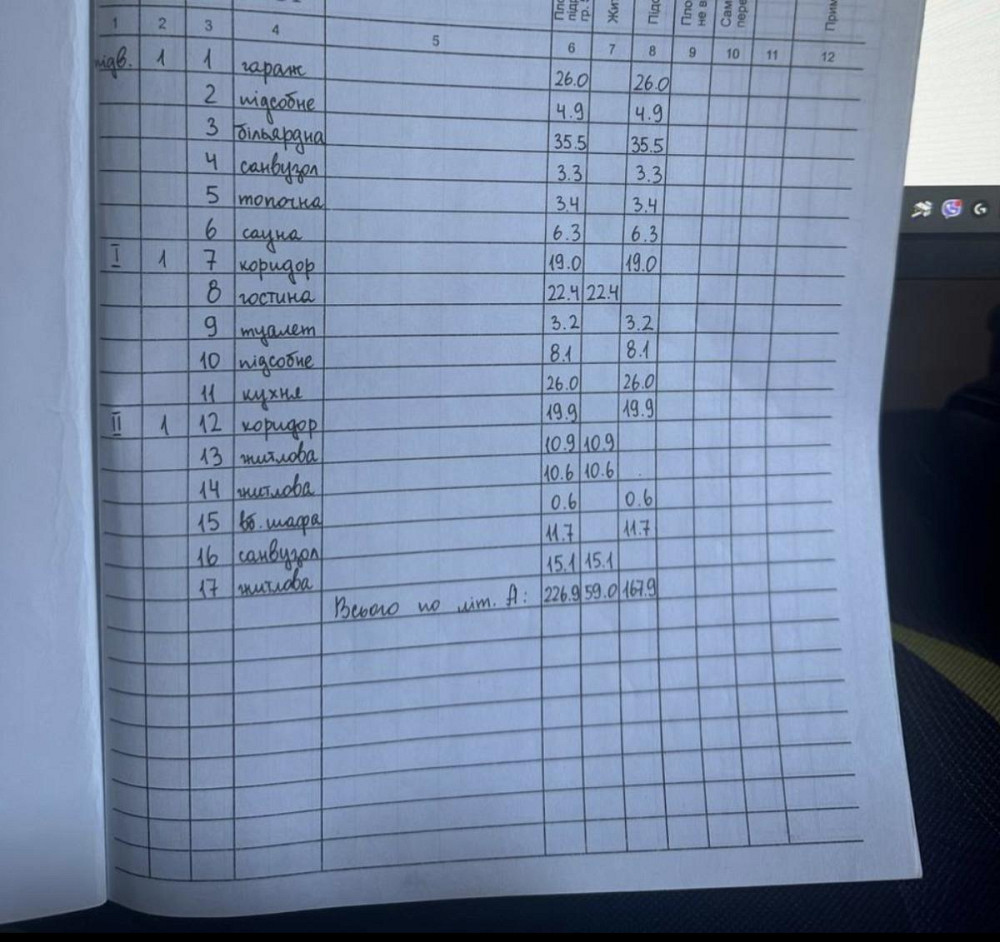 Пло підр гр. Жит Підс Пло не в Сам пере Прим
1 2 3 4 5 6 7 8 9 10 11 12
підв. 1 1 гараж 26.0 26.0
2 підсобне 4.9 4.9
3 більярдна 35.5 35.5
4 санвузол 3.3 3.3
5 топочна 3.4 3.4
6 сауна 6.3 6.3
I 1 7 коридор 19.0 19.0
8 гостина 22.4 22.4
9 туалет 3.2 3.2
10 підсобне 8.1 8.1
11 кухня 26.0 26.0
II 1 12 коридор 19.9 19.9
13 житлова 10.9 10.9
14 житлова 10.6 10.6
15 вб. шафа 0.6 0.6
16 санвузол 11.7 11.7
17 житлова 15.1 15.1
Всього по літ. А: 226.9 59.0 167.9